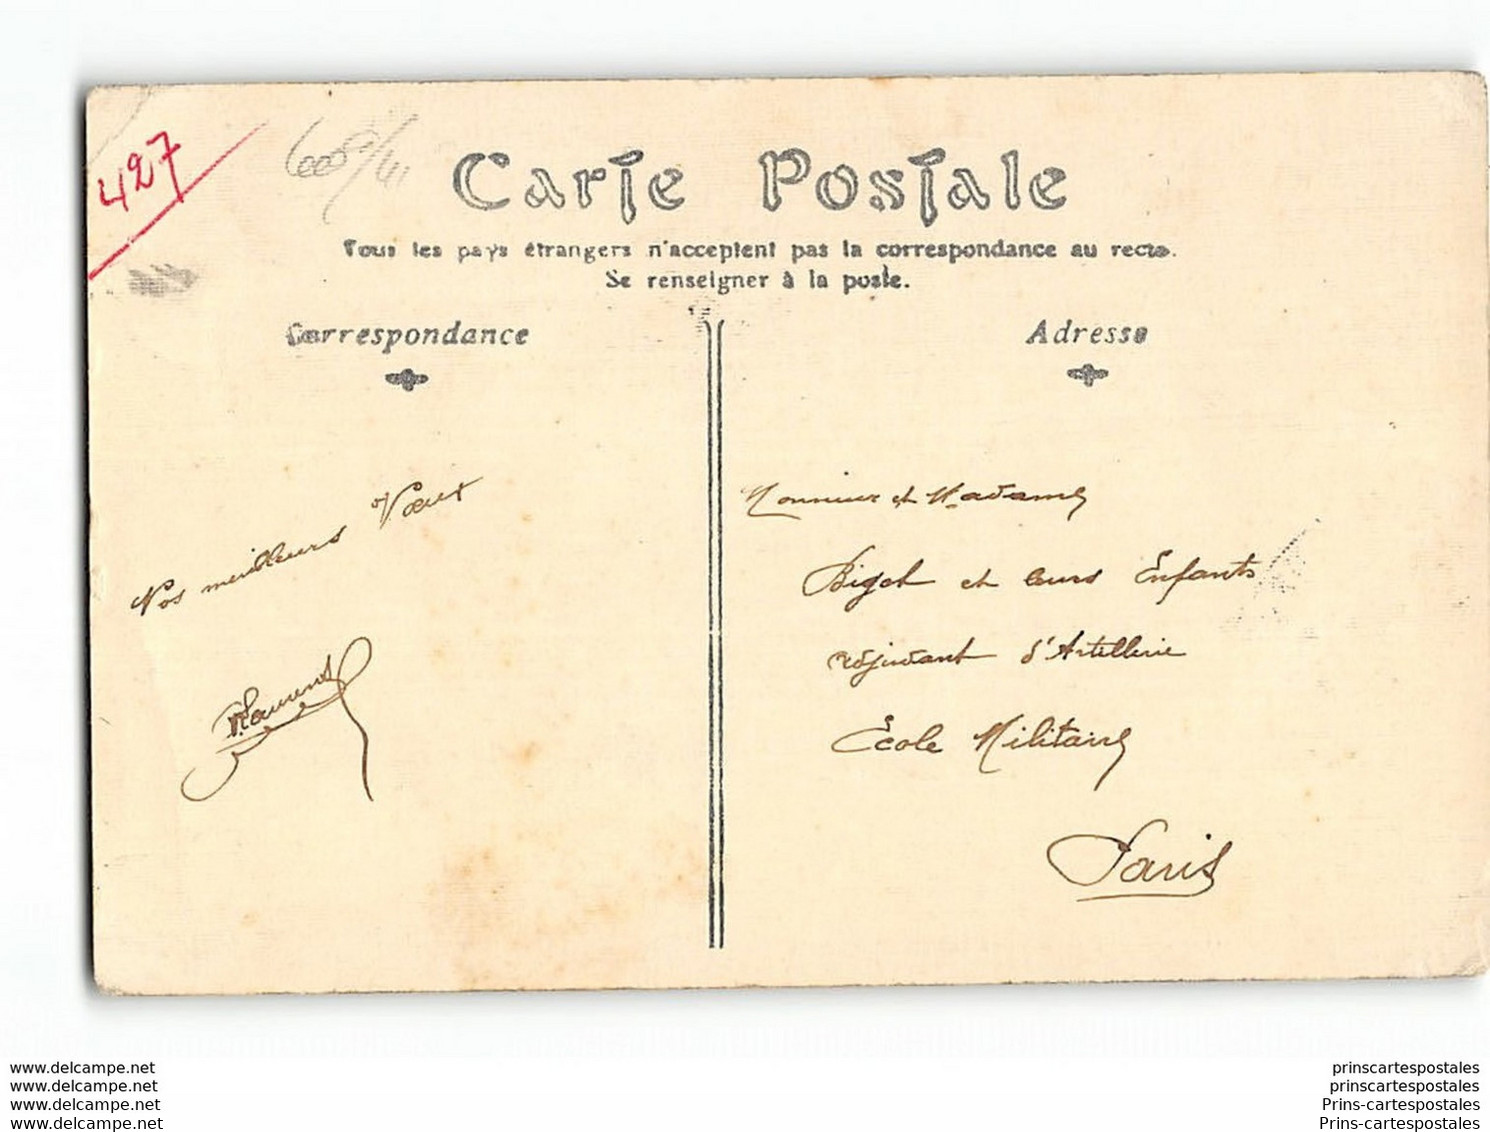 427
Carte Postale
Tous les pays étrangers n'acceptent pas la correspondance au recto.
Se renseigner à la poste.
Correspondance
Adresse
Nos meilleurs Vœux
Monsieur et Madame
Bigot et leurs Enfants
adjudant d'Artillerie
École Militaire
Paris
www.delcampe.net
www.delcampe.net
www.delcampe.net
www.delcampe.net
prinscartespostales
prinscartespostales
Prins-cartespostales
Prins-cartespostales